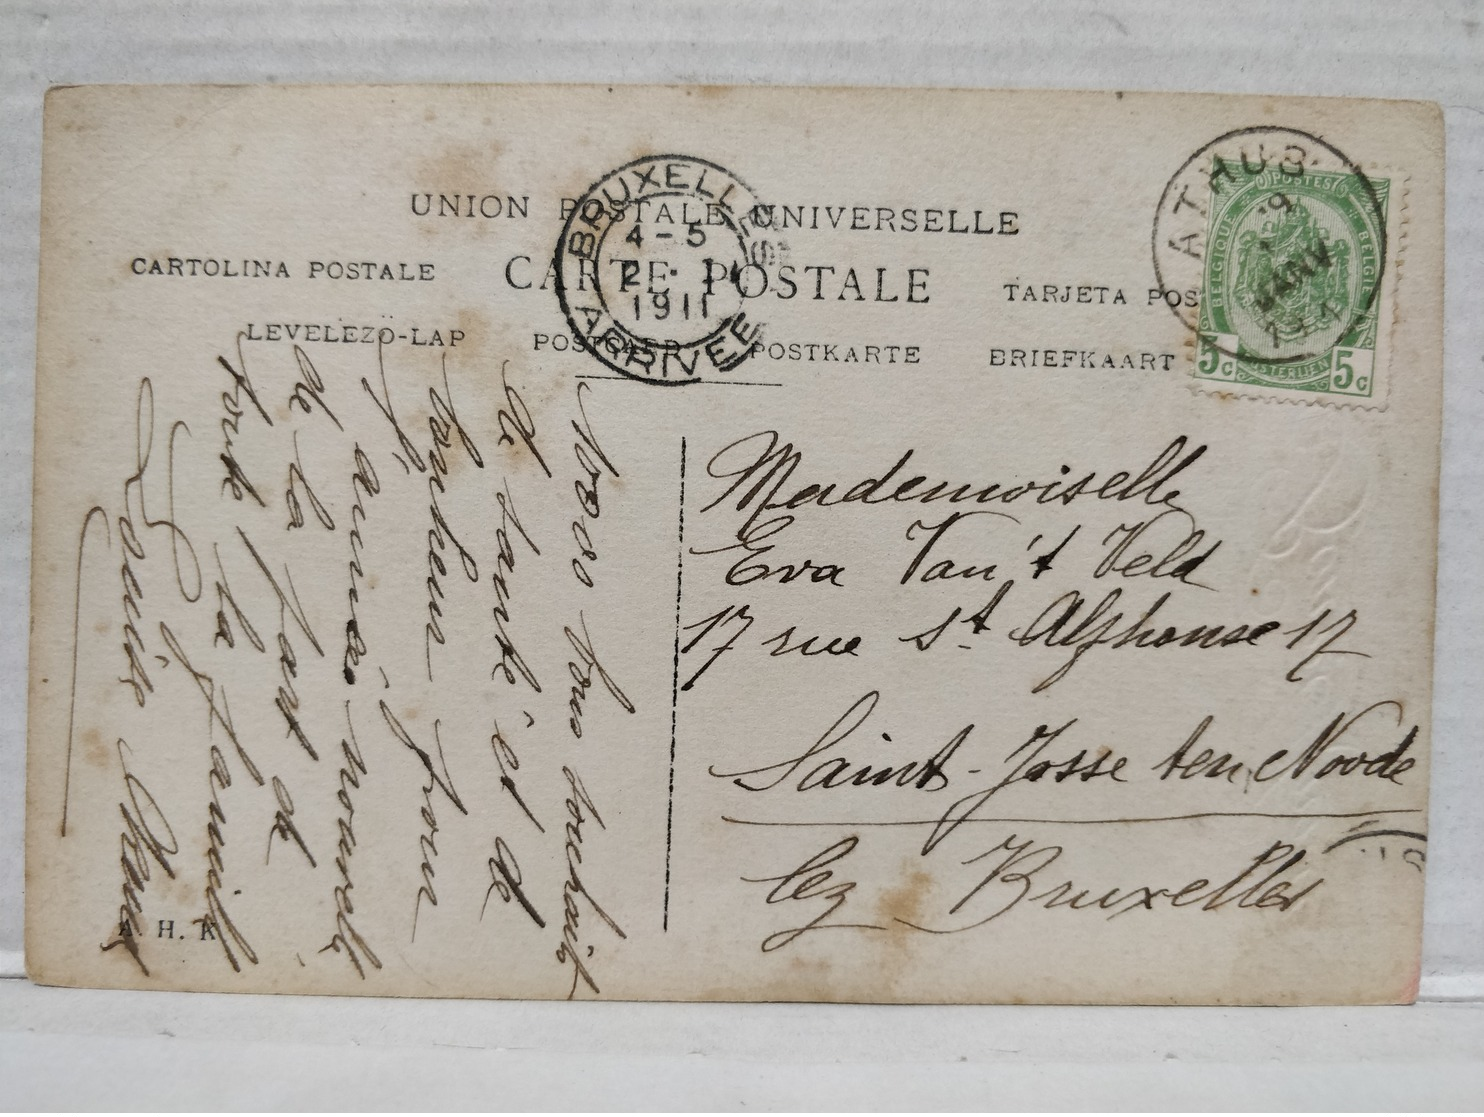 UNION POSTALE UNIVERSELLE
CARTOLINA POSTALE
CARTE POSTALE
TARJETA POS
LEVELEZÖ-LAP
POSTCARD
POSTKARTE
BRIEFKAART
BRUXELLES
4-5
2 · 1
1911
ARRIVÉE
ATHUS
JANV
POSTES
BELGIQUE
BELGIE
POSTERIJEN
5c
5c
Mademoiselle
Eva Van't Veld
17 rue St. Alphonse 17
Saint-Josse ten Noode
lez Bruxelles
vous souhait
de santé et de
bonheur pour
l'
année nouvelle
de la part de
toute la famille
Louise
A. H. K